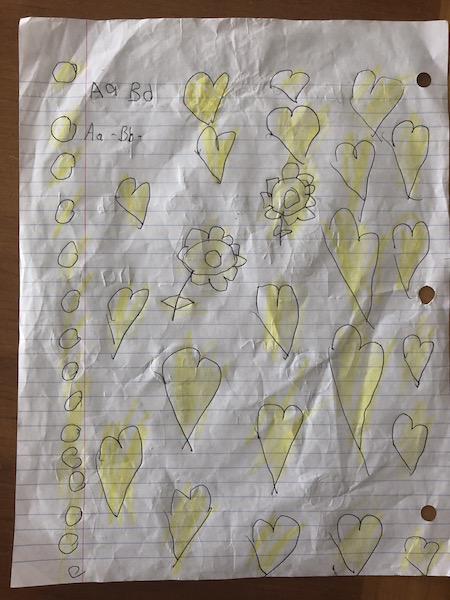 Aa Bd
Aa - Bb -